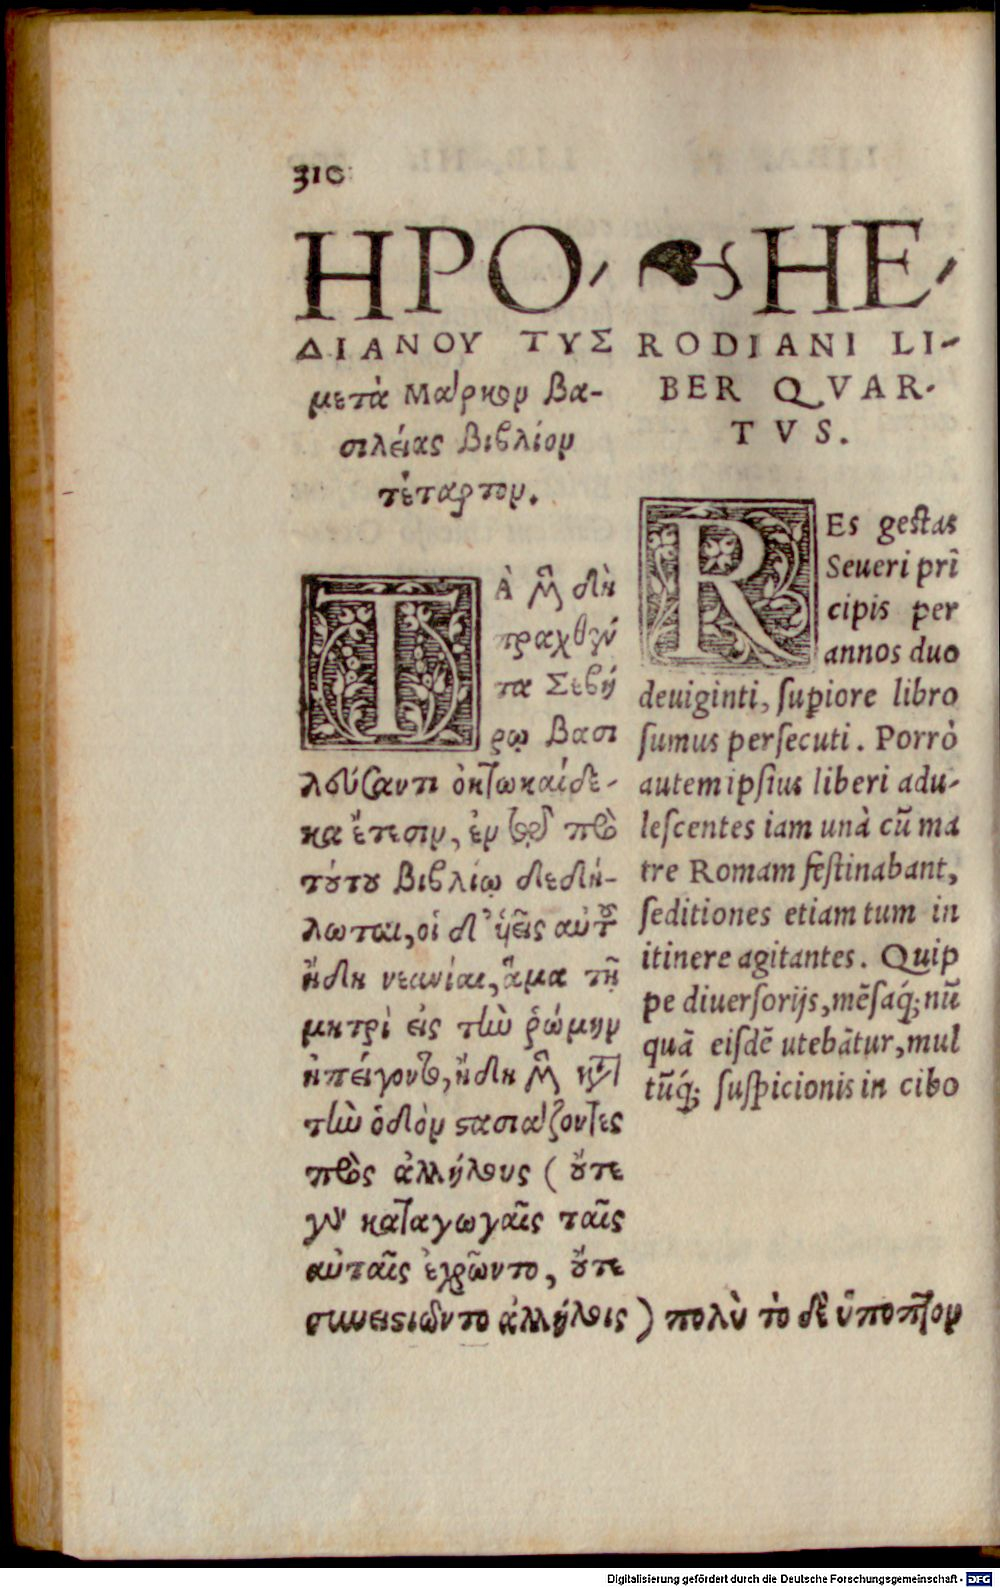 310
ΗΡΟ-
ΔΙΑΝΟΥ ΤΥΣ
μετὰ Μάρκου βα-
σιλείας βιβλίου
τέταρτου.
ΤᾺ μὲν δὴ
πραχθέν
τα Σεβή
ρῳ βασι
λεύσαντι ὀκτωκαίδε-
κα ἔτεσιν, ἐν τῷ πρὸ
τούτου βιβλίῳ δεδή-
λωται, οἱ δ' ἡεῖς αὐτοῦ
ἤδη νεανίαι, ἅμα τῇ
μητρὶ εἰς τὴν ῥώμην
ἠπείγοντο, ἤδη μὲν κατὰ
τὴν ὁδὸν ϛασιάζοντες
πρὸς ἀλλήλους ( οὔτε
γὰρ καταγωγαῖς ταῖς
αὐταῖς ἐχρῶντο, οὔτε
συνειϛιῶντο ἀλλήλοις ) πολὺ τὸ δὲ ὕποπτον
HE-
RODIANI LI-
BER QVAR-
TVS.
REs gestas
Seueri prī
cipis per
annos duo
deuiginti, supiore libro
sumus persecuti. Porrò
autem ipsius liberi adu-
lescentes iam unà cū ma
tre Romam festinabant,
seditiones etiam tum in
itinere agitantes. Quip
pe diuersorijs, mēsaq́; nū
quā eisdē utebātur, mul
tūq́; suspicionis in cibo
Digitalisierung gefördert durch die Deutsche Forschungsgemeinschaft - DFG